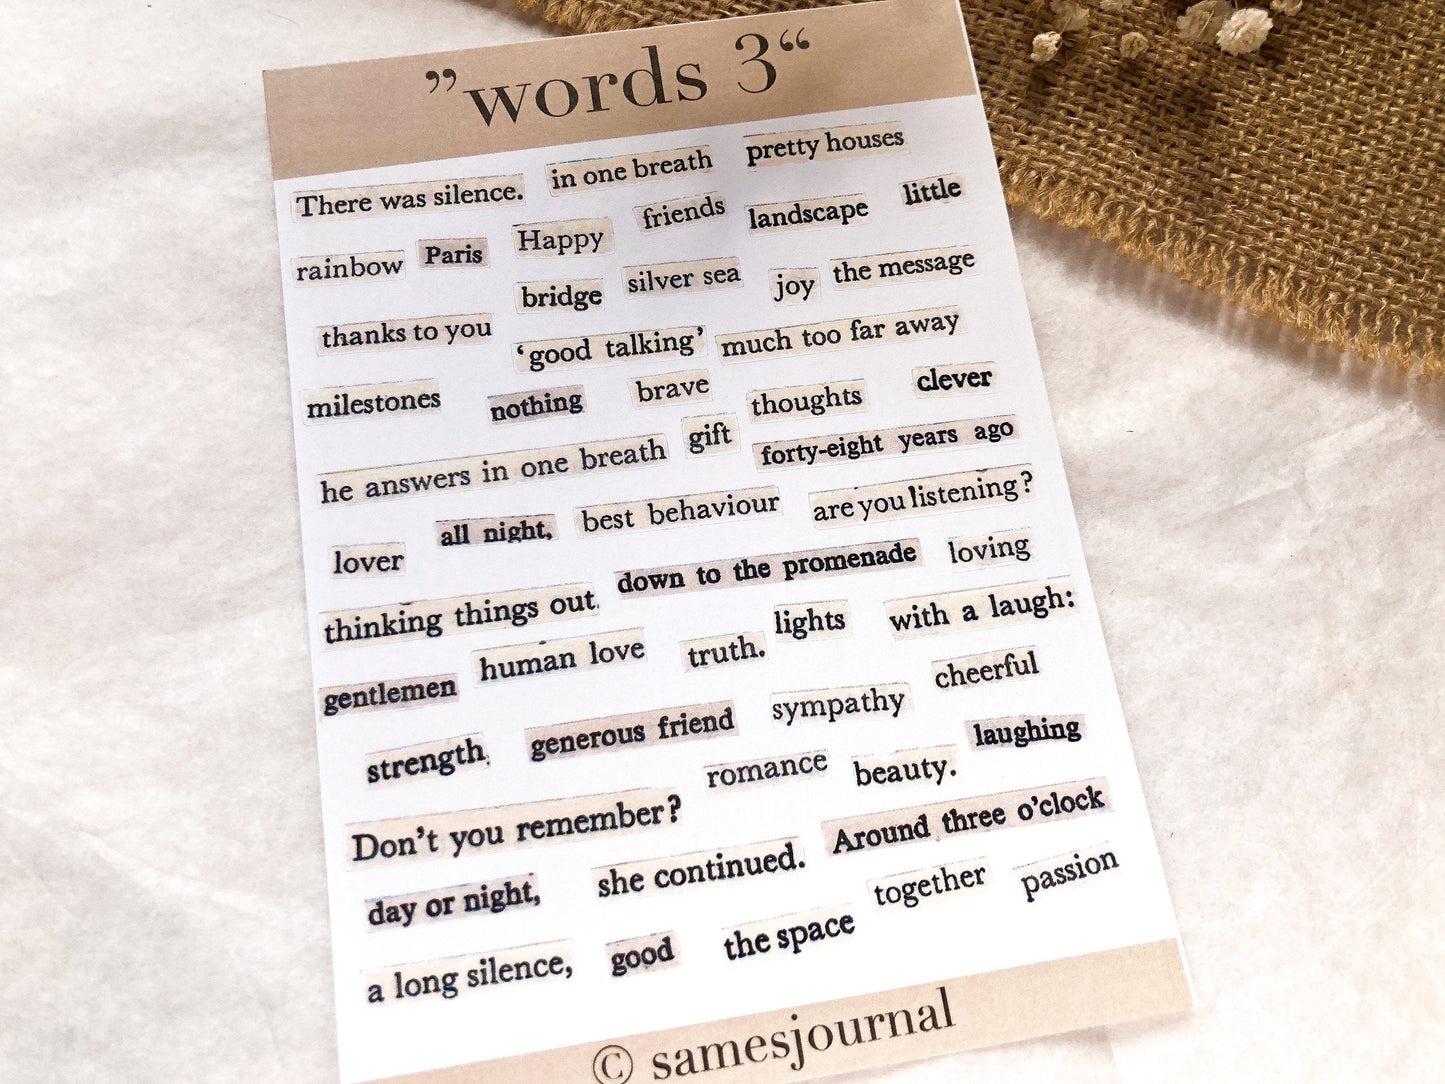 ”words 3“
There was silence. in one breath pretty houses
rainbow Paris Happy friends landscape little
bridge silver sea joy the message
thanks to you ‘good talking’ much too far away
milestones nothing brave thoughts clever
he answers in one breath gift forty-eight years ago
lover all night, best behaviour are you listening?
thinking things out. down to the promenade loving
gentlemen human love truth. lights with a laugh:
strength. generous friend sympathy cheerful
Don’t you remember? romance beauty. laughing
day or night, she continued. Around three o’clock
a long silence, good the space together passion
© samesjournal